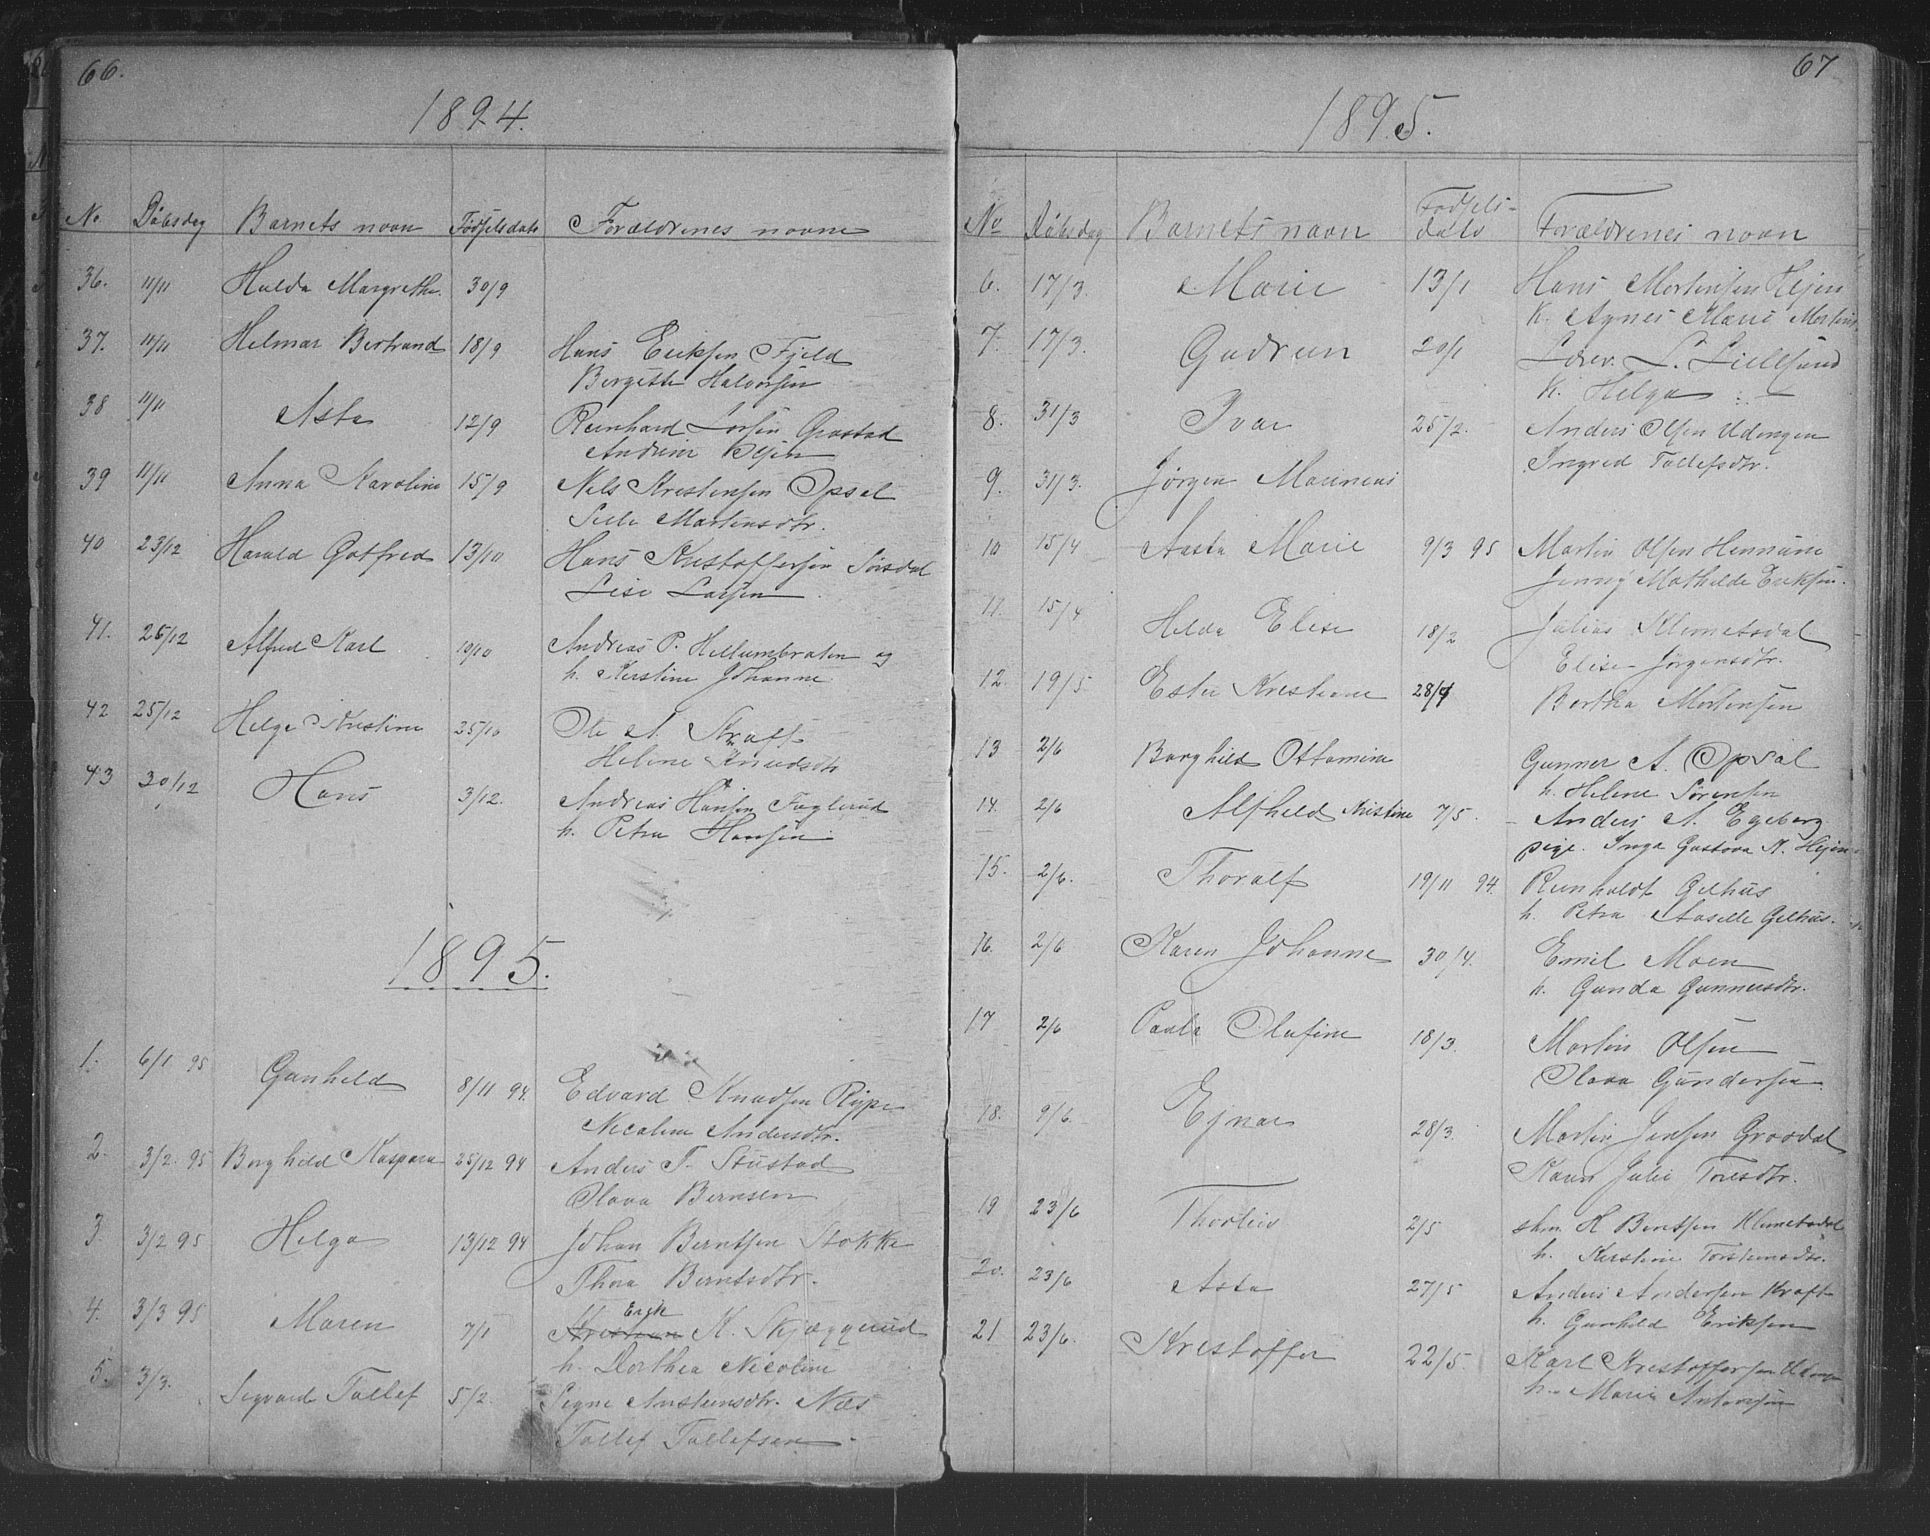 66.
1894.
No Døbsdag Barnets navn Fødselsdato Forældrenes navne
36. 11/11 Hulda Margrethe. 30/9
37. 11/11 Helmar Bertrand 18/9 Hans Eriksen Fjeld
Bergitte Halvorsen
38 11/11 Asta 12/9 Reinhard Larsen Grostad
Andrine Olsen
39 11/11 Anna Karoline 15/9 Nels Kristensen Opsal
Sille Martensdtr.
40 23/12 Harald Gotfred 13/10 Hans Kristoffersen Sørsdal
Lise Larsen
41. 25/12 Alfred Karl 10/10 Andreas P. Hellumbraten og
h. Kerstine Johanne
42 25/12 Helga Kristine 25/10 Ole A. Kraft
Helene Knudsdtr
43 30/12 Hans 3/12. Andreas Hansen Faglerud
h. Petra Hansen
1895.
1. 6/1 95 Gunheld 8/11 94. Edvard Knudsen Rype
Nicoline Andersdtr.
2. 3/2. 95 Borghild Kaspara 25/12 94 Anders T. Stustad
Olava Bernsen
3. 3/2 95 Helga 13/12 94 Johan Berntsen Stokke
Thora Berntsdtr.
4. 3/3 95 Maren 7/1 Kristian Erik K. Skjæggerud
h. Dorthea Nicoline
5. 3/3. Sigvard Tollef 5/2. Signe Anstensdtr. Næs
Tollef Tollefsen
67
1895.
No Døbsdag Barnets navn Fødselsdato Forældrenes navn
6. 17/3. Marie 13/1 Hans Mortensen Hejen
k. Agnes Marie Mortens
7. 17/3. Gudrun 20/1 Lorev. L. Lillesund
k. Helga
8. 31/3 Ivar 25/2. Anders Olsen Udengen
Ingred Tollefsdtr.
9. 31/3. Jørgen Marineus
10 15/4 Aasta Marie 9/3 95 Martin Olsen Hennum
Jenny Mathilde Eriksen.
11. 15/4 Helda Elise 18/2 Julius Klemetsdal
Elise Jørgensdtr.
12. 19/5. Ester Kristiane 28/4 Bertha Mortensen
13 2/6 Borghild Ottomine Gunner A. Opsal
h. Helene Sørensen
14. 2/6 Alfheld Kristine 7/5. Anders A. Egeberg
pige. Inga Gustava N. Hejen
15. 2/6. Thoralf 19/11 94. Reinholdt Gelhus
h. Petra Aaselle Gelhus.
16. 2/6 Karen Johanne 30/4. Emil Moen
h. Gunda Gunnersdtr.
17 2/6 Paula Olufine 18/3. Martin Olsen
Olava Gundersen
18. 9/6. Ejnar 28/3. Martin Jensen Grosdal
Karen Julie Toresdtr.
19 23/6 Thorleiv 2/5 skm. H Berntsen Klemetsdal
h. Kerstine Torstensdtr.
20. 23/6 Asta 27/5 Anders Andersen Kraft
h. Gunhild Eriksen
21 23/6. Kristoffer 22/5. Karl Kristoffersen Udengen
h. Maria Antonsen